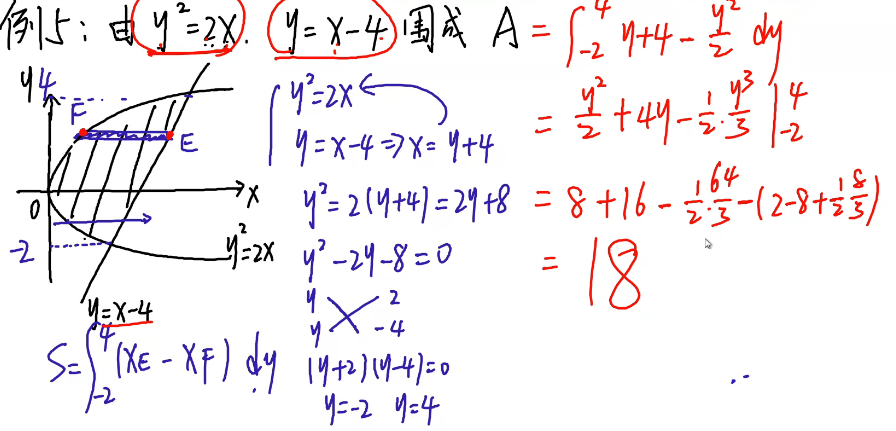 例15: 由 y²=2x. y=x-4 围成 A = ∫₋₂⁴ y+4 - y²/2 dy
= y²/2 + 4y - 1/2 · y³/3 |₋₂⁴
= 8+16 - 1/2 · 64/3 - (2-8+1/2 8/3)
= 18
y
4
F
E
x
0
-2
y²=2x
y=x-4
S=∫₋₂⁴ (xE - xF) dy
{ y²=2x
y=x-4 => x=y+4
y²=2(y+4)=2y+8
y²-2y-8=0
y 2
y -4
(y+2)(y-4)=0
y=-2 y=4